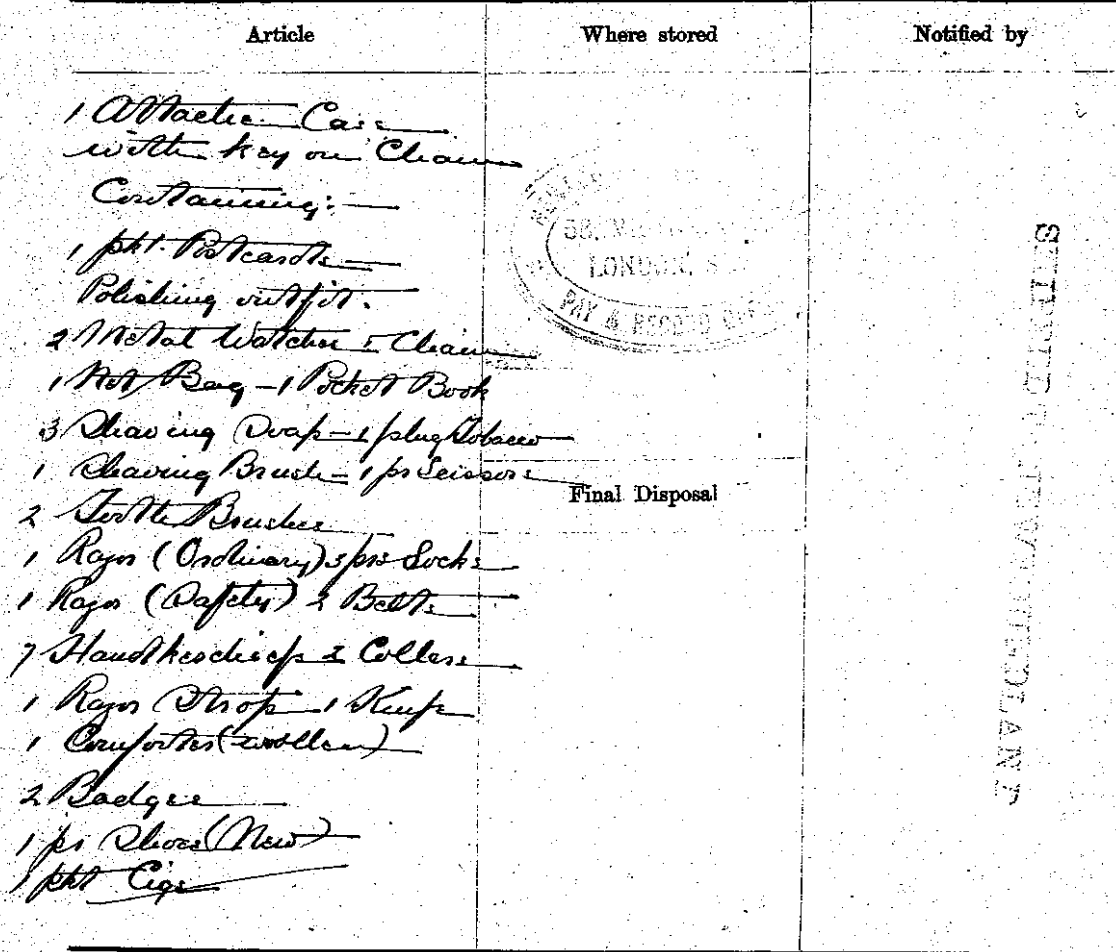 Article
Where stored
Notified by
1 Attache Case
with key on Chain
Containing:-
1 pkt. Postcards
Polishing outfit.
2 Metal Watches & Chain
1 Net Bag - 1 Pocket Book
3 Shaving Soap - 1 plug Tobacco
1 Shaving Brush - 1 pr Scissors
2 Tooth Brushes
1 Razor (Ordinary) 3 prs Socks
1 Razor (Safety) 2 Belts
7 Handkerchiefs 2 Collars
1 Razor Strop 1 Knife
1 Comforter (woollen)
2 Badges
1 pr Shoes (New)
1 pkt Cigs
Final Disposal
58,
LONDON, S
PAY & RECORD